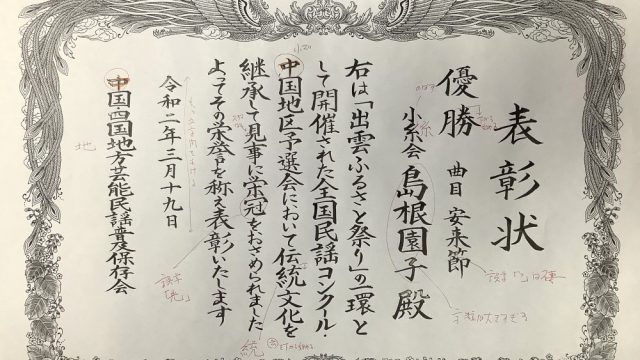 表彰状
優勝 曲目 安来節
小糸会 島根園子 殿
右は「出雲ふるさと祭り」の一環と
して開催された全国民謡コンクール・
中国地区予選会において伝統文化を
継承して見事に栄冠をおさめられました
よってその栄誉を称え表彰いたします
令和二年三月十九日
中国・四国地方芸能民謡普及保存会
糸
統
地